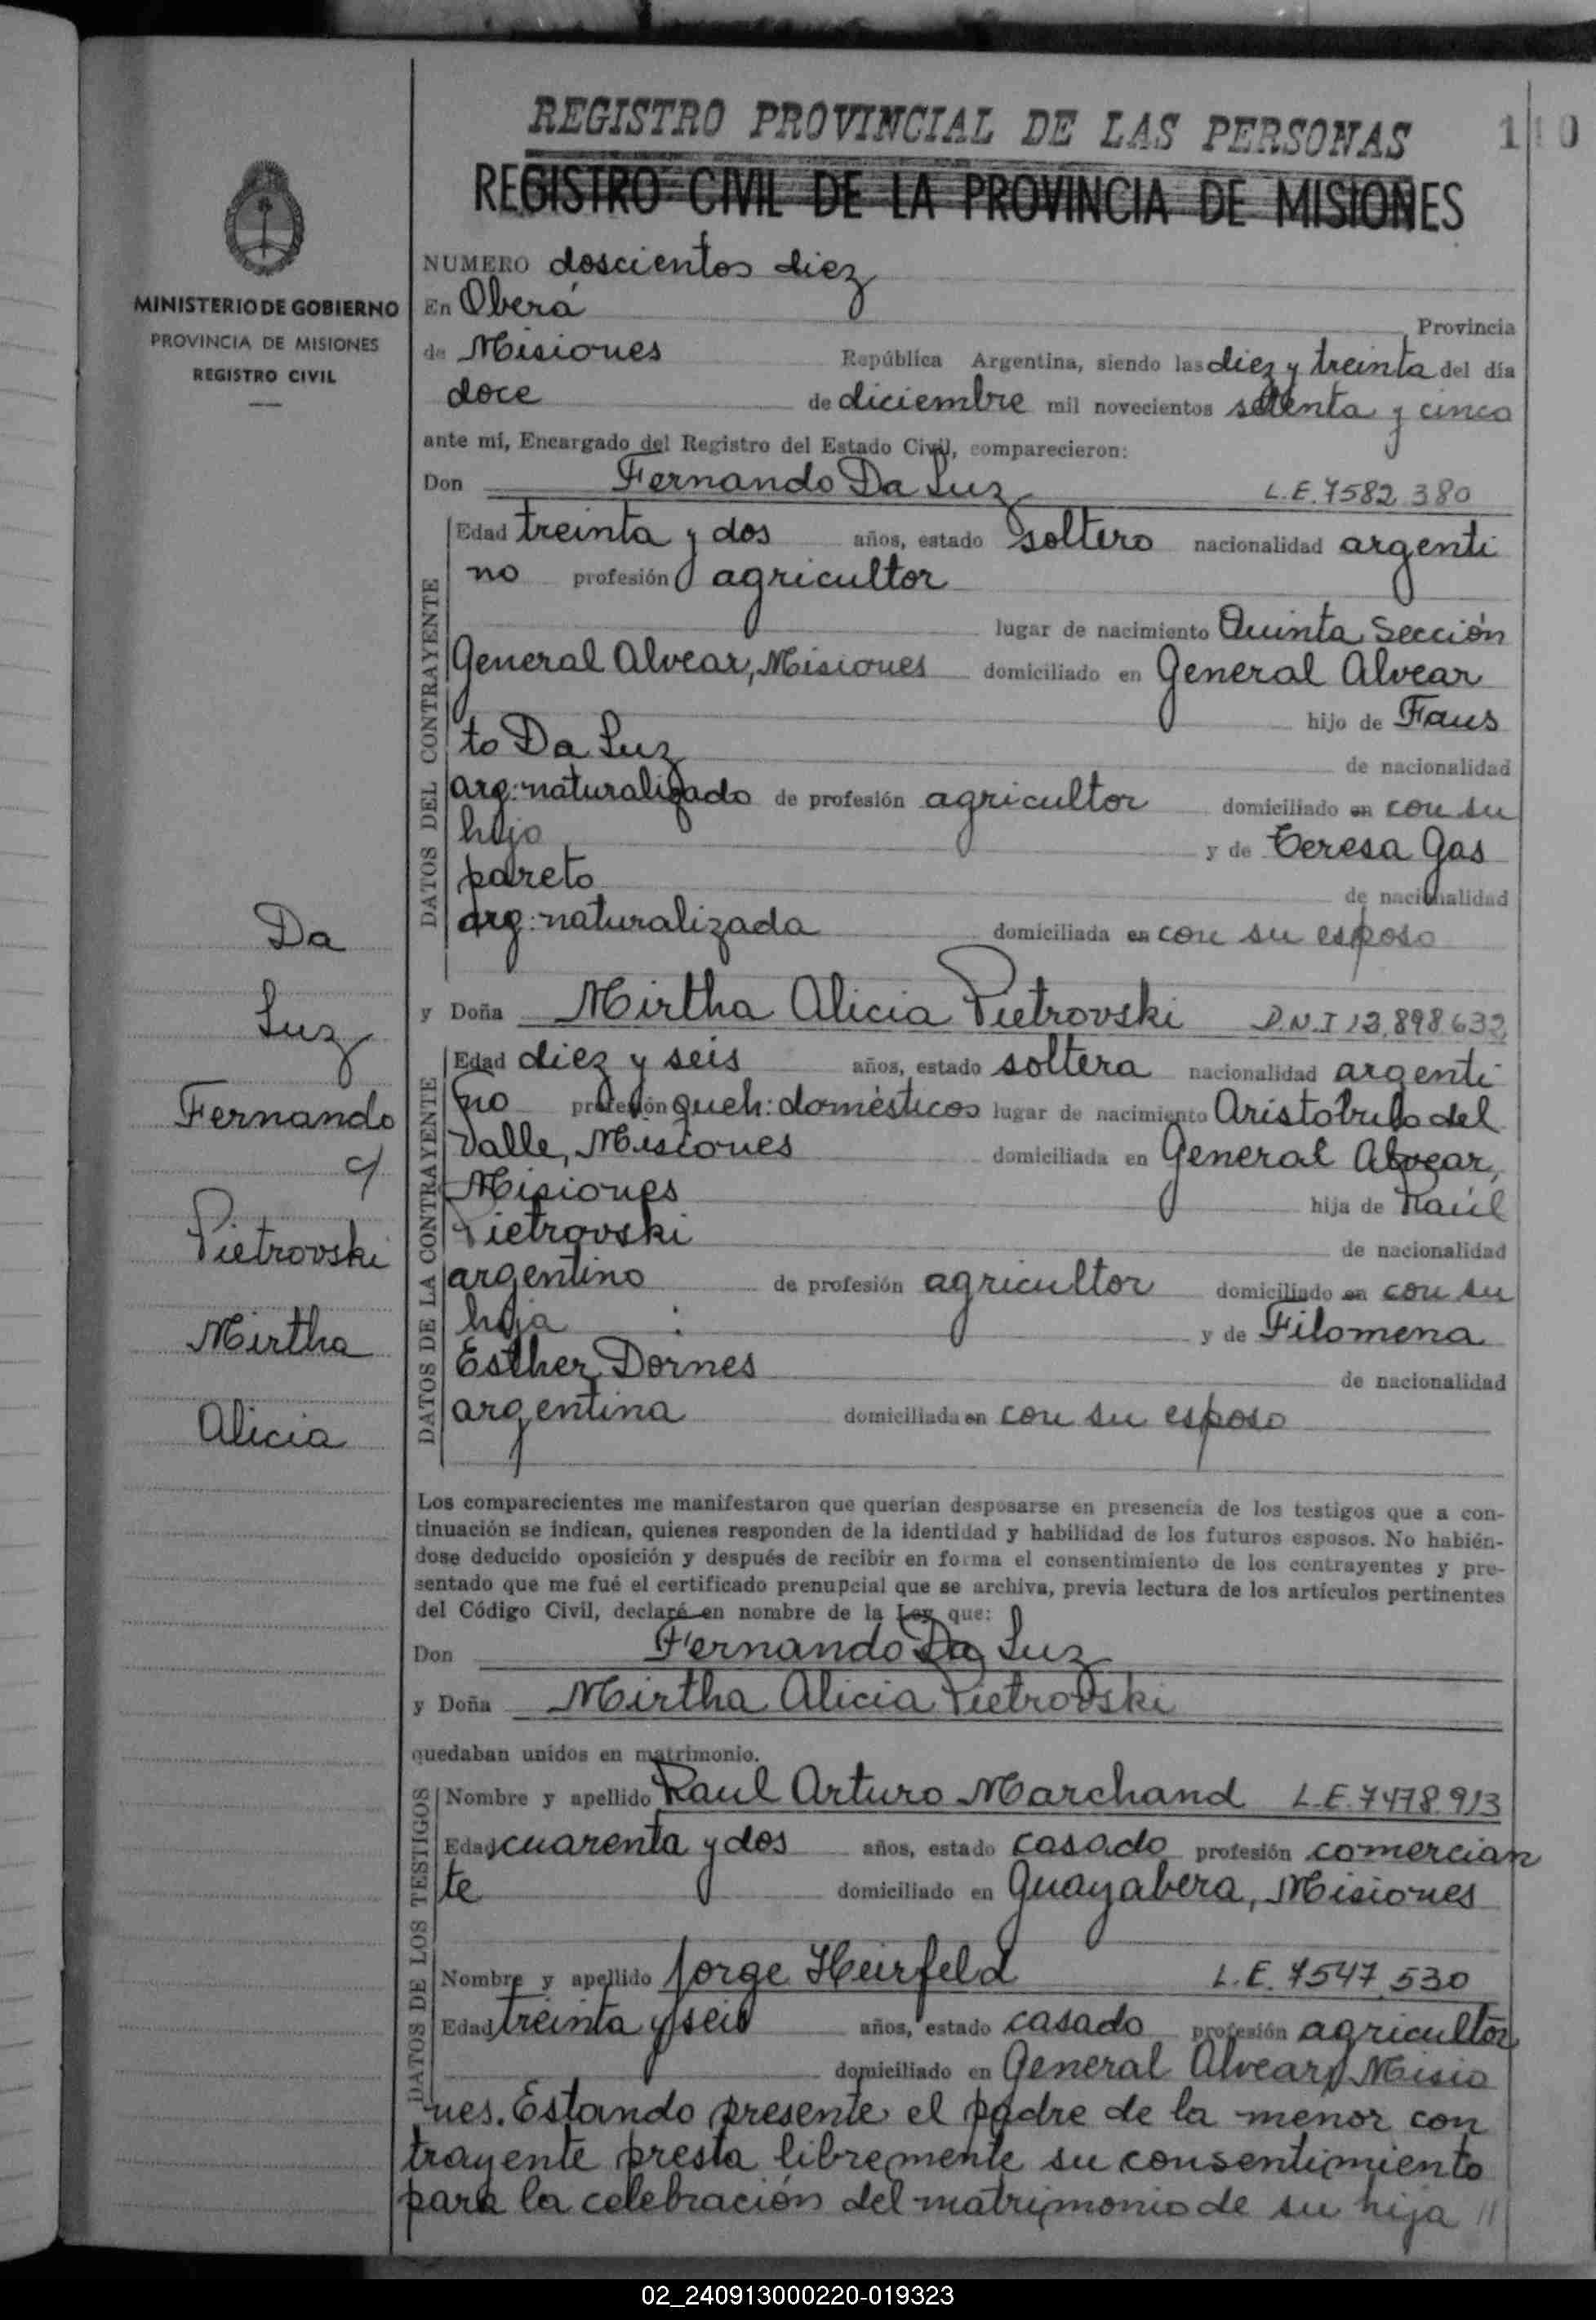 REGISTRO PROVINCIAL DE LAS PERSONAS
REGISTRO CIVIL DE LA PROVINCIA DE MISIONES
MINISTERIO DE GOBIERNO
PROVINCIA DE MISIONES
REGISTRO CIVIL
NUMERO doscientos diez
En Oberá Provincia
de Misiones República Argentina, siendo las diez y treinta del día
doce de diciembre mil novecientos setenta y cinco
ante mí, Encargado del Registro del Estado Civil, comparecieron:
Don Fernando Da Luz L.E. 7582.380
DATOS DEL CONTRAYENTE
Edad treinta y dos años, estado soltero nacionalidad argenti
no profesión agricultor
lugar de nacimiento Quinta Sección
General Alvear, Misiones domiciliado en General Alvear
hijo de Faus
to Da Luz de nacionalidad
arg: naturalizado de profesión agricultor domiciliado en con su
hijo y de Teresa Gas
pareto de nacionalidad
arg: naturalizada domiciliada en con su esposo
y Doña Mirtha Alicia Pietrovski D.N.I 12.898.632
DATOS DE LA CONTRAYENTE
Edad diez y seis años, estado soltera nacionalidad argenti
no profesión queh: domésticos lugar de nacimiento Aristóbulo del
Valle, Misiones domiciliada en General Alvear,
Misiones hija de Raúl
Pietrovski de nacionalidad
argentino de profesión agricultor domiciliado en con su
hija y de Filomena
Esther Dornes de nacionalidad
argentina domiciliada en con su esposo
Da
Luz
Fernando
c/
Pietrovski
Mirtha
Alicia
Los comparecientes me manifestaron que querían desposarse en presencia de los testigos que a con-
tinuación se indican, quienes responden de la identidad y habilidad de los futuros esposos. No habién-
dose deducido oposición y después de recibir en forma el consentimiento de los contrayentes y pre-
sentado que me fué el certificado prenupcial que se archiva, previa lectura de los artículos pertinentes
del Código Civil, declaré en nombre de la Ley que:
Don Fernando Da Luz
y Doña Mirtha Alicia Pietrovski
quedaban unidos en matrimonio.
DATOS DE LOS TESTIGOS
Nombre y apellido Raul Arturo Marchand L.E. 7478.913
Edad cuarenta y dos años, estado casado profesión comercian
te domiciliado en Guayabera, Misiones
Nombre y apellido Jorge Heirfeld L.E. 7547.530
Edad treinta y seis años, estado casado profesión agricultor
domiciliado en General Alvear, Misio
nes. Estando presente el padre de la menor con
trayente presta libremente su consentimiento
para la celebración del matrimonio de su hija //
02_240913000220-019323